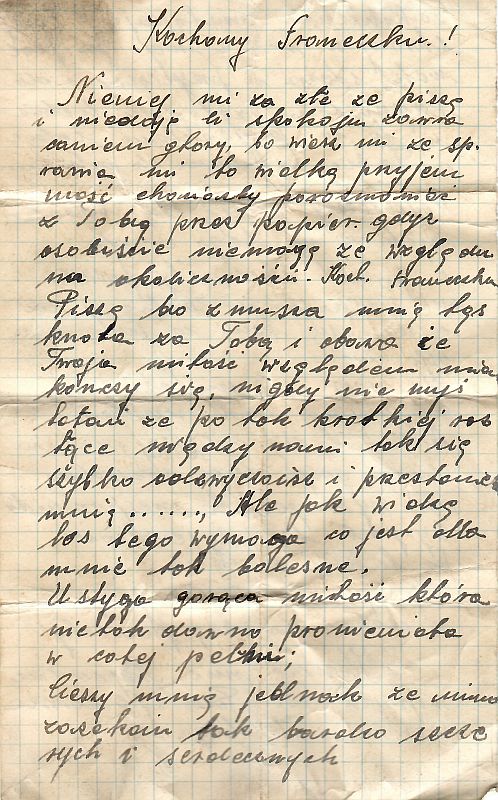 Kochany Franciszku.!
Niemiej mi za złe że piszę
i niedaję Ci spokoju zawra
caniem głowy, bo wiesz mi że sp.
rawia mi to wielką przyjem
ność chociażby porozmawiać
z Tobą przez papier. gdyż
osobiście niemogę ze względu
na okoliczności. Koch. Franciszku
Piszę bo zmusza mnię tęs
knota za Tobą i obawa że
Twoja miłość względem mnie
kończy się, nigdy nie myś
lałam że po tak krótkiej roz
łące między nami tak się
szybko odzwyczaisz i przestaniesz
mnię ......, Ale jak widzę
los tego wymaga co jest dla
mnie tak bolesne.
Ustyga gorąca miłość która
nietak dawno promieniała
w całej pełni;
Cieszy mnię jednak że mimo
zaszkoin tak bardzo szcze
rych i serdecznych